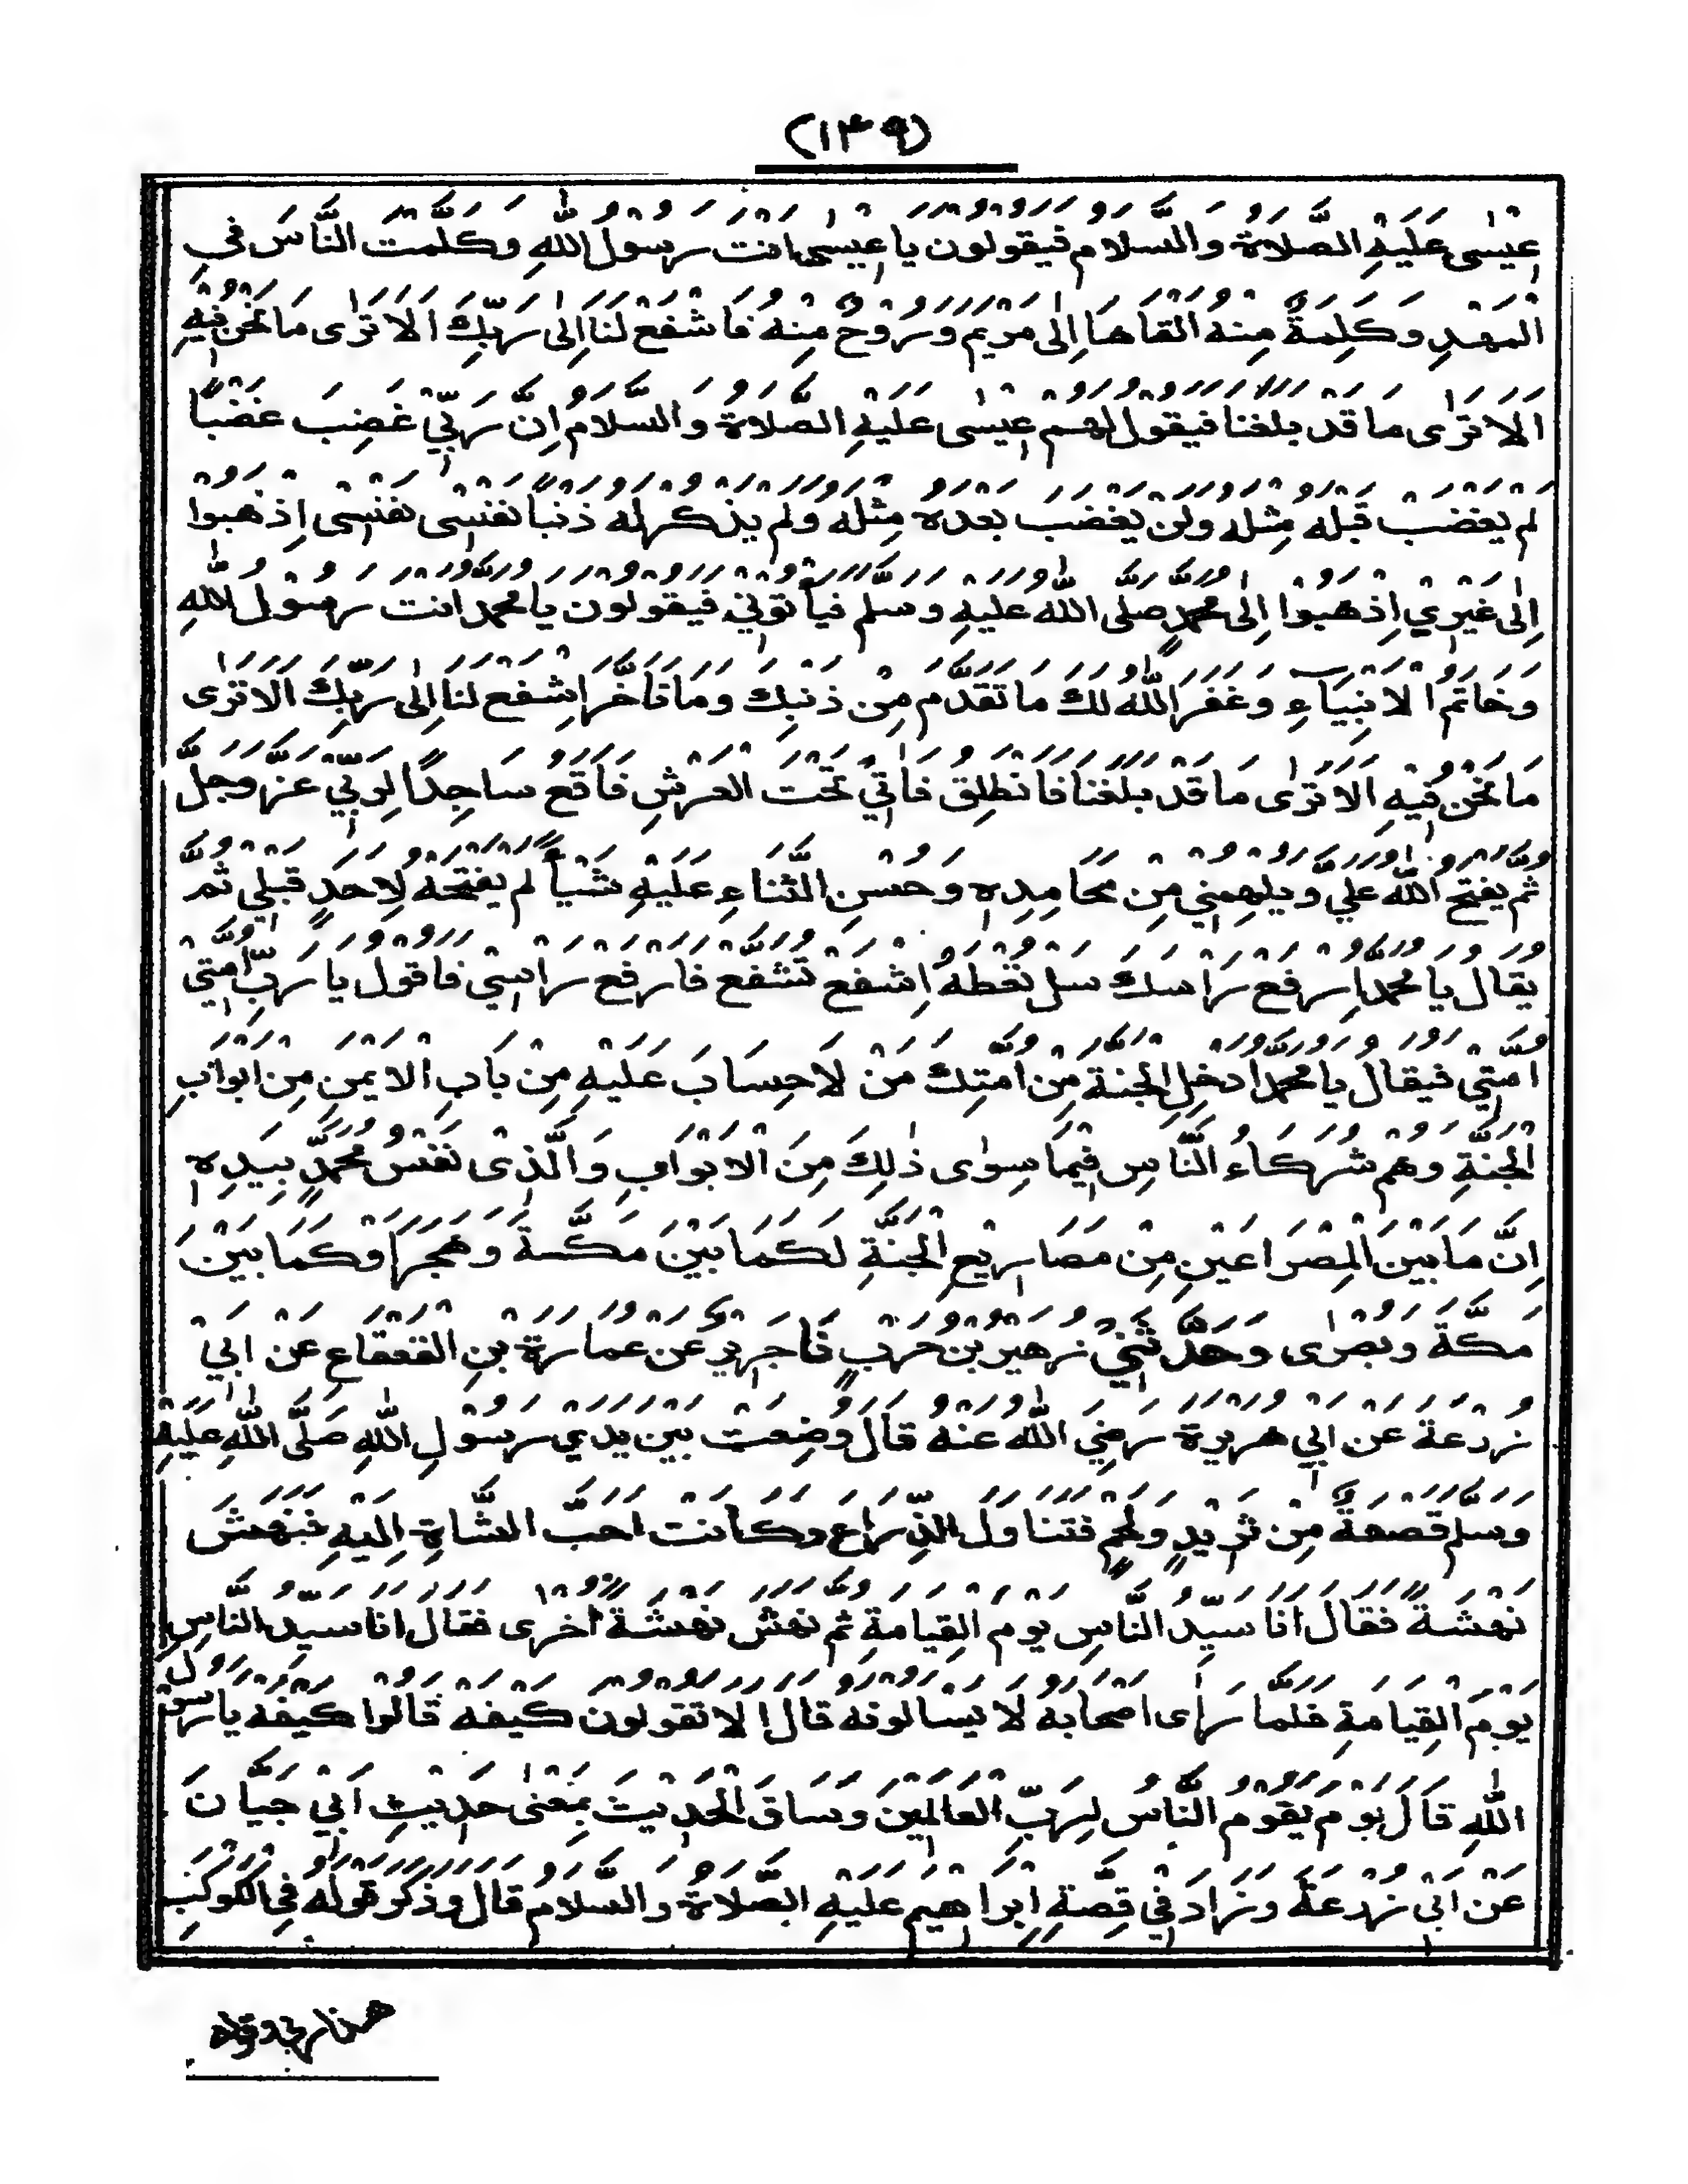 (١٣٩)
عيسى عليه الصلاة والسلام فيقولون يا عيسى انت رسول الله وكلمت الناس في
المهد وكلمة منه القاها الى مريم وروح منه فاشفع لنا الى ربك الا ترى ما نحن فيه
الا ترى ما قد بلغنا فيقول لهم عيسى عليه الصلاة والسلام ان ربي غضب غضبا
لم يغضب قبله مثله ولن يغضب بعده مثله ولم يذكر له ذنبا نفسى نفسى اذهبوا
الى غيري اذهبوا الى محمد صلى الله عليه وسلم فيأتوني فيقولون يا محمد انت رسول الله
وخاتم الانبياء وغفر الله لك ما تقدم من ذنبك وما تاخر اشفع لنا الى ربك الا ترى
ما نحن فيه الا ترى ما قد بلغنا فانطلق فاتي تحت العرش فاقع ساجدا لربي عز وجل
ثم يفتح الله علي ويلهمني من محامده وحسن الثناء عليه شيأ لم يفتحه لاحد قبلي ثم
يقال يا محمد ارفع راسك سل تعطه اشفع تشفع فارفع راسي فاقول يا رب امتي
امتي فيقال يا محمد ادخل الجنة من امتك من لا حساب عليه من باب الايمن من ابواب
الجنة وهم شركاء الناس فيما سوى ذلك من الابواب والذى نفس محمد بيده
ان ما بين المصراعين من مصاريع الجنة لكما بين مكة وهجر او كما بين
مكة وبصرى وحدثني زهير بن حرب نا جرير عن عمارة بن القعقاع عن ابي
زرعة عن ابي هريرة رضي الله عنه قال وضعت بين يدي رسول الله صلى الله عليه
وسلم قصعة من ثريد ولحم فتناول الذراع وكانت احب الشاة اليه فنهش
نهشة فقال انا سيد الناس يوم القيامة ثم نهش نهشة اخرى فقال انا سيد الناس
يوم القيامة فلما راى اصحابه لا يسالونه قال الا تقولون كيفه قالوا كيفه يا رسول
الله قال يوم يقوم الناس لرب العالمين وساق الحديث بمعنى حديث ابي حيان
عن ابي زرعة وزاد في قصة ابراهيم عليه الصلاة والسلام قال وذكر قوله في الكوكب